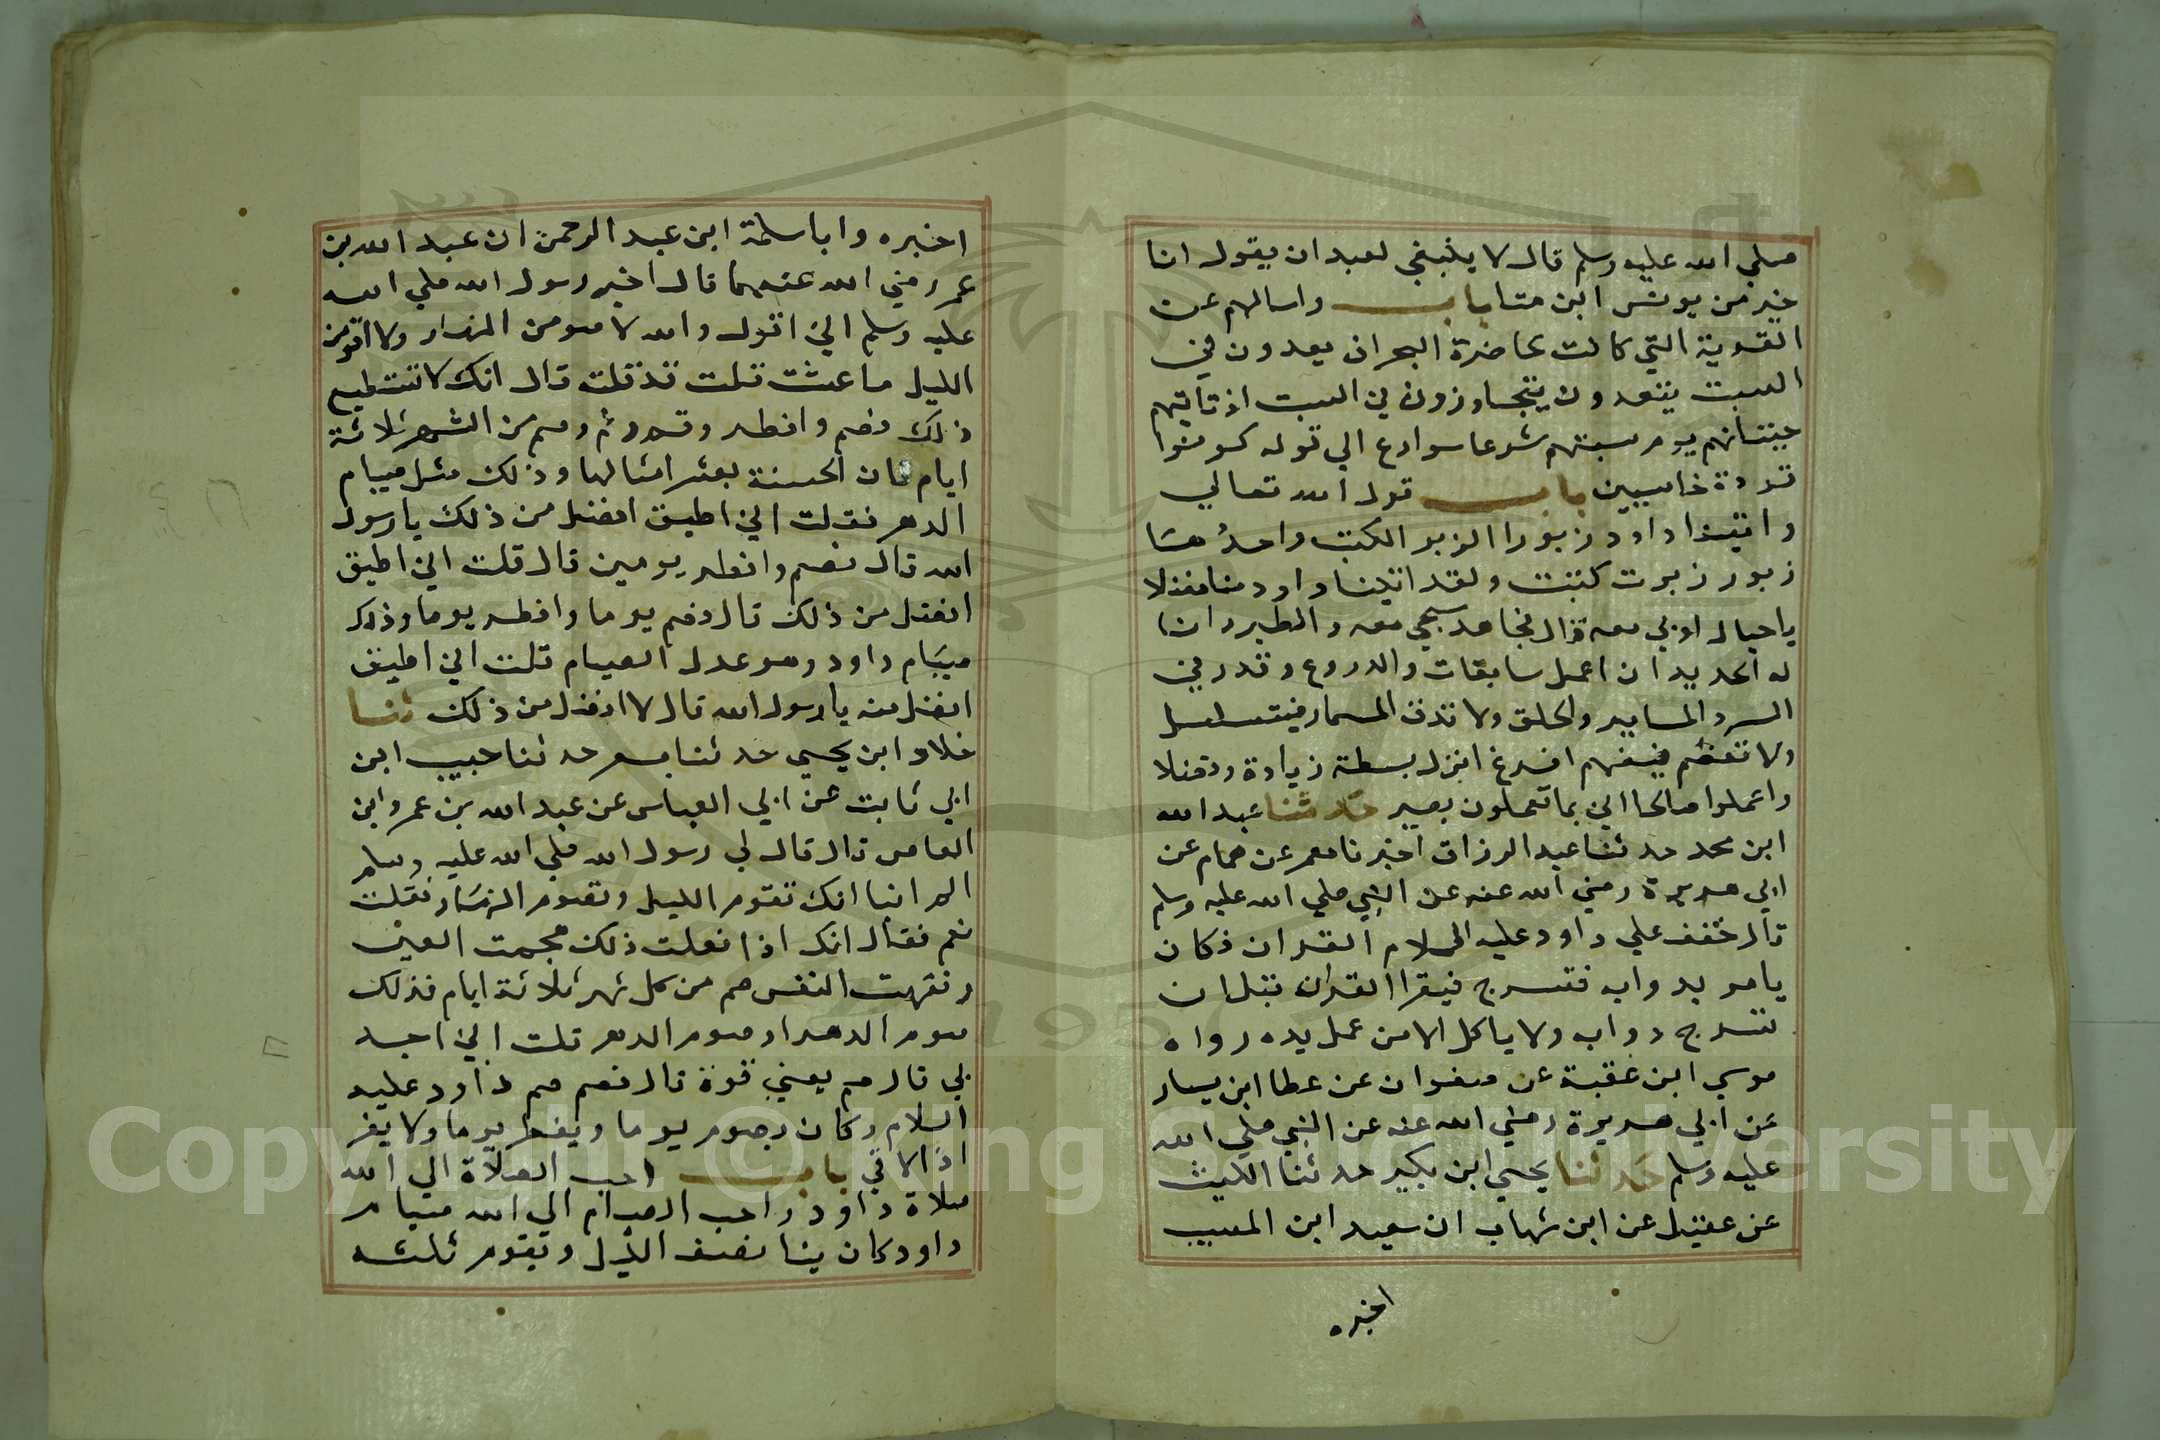 صلي الله عليه وسلم قال لا ينبغي لعبد ان يقول انا
خير من يونس ابن متا باب واسالهم عن
القرية التي كانت حاضرة البحر اذ يعدون في
السبت يتعدون يتجاوزون في السبت اذ تاتيهم
حيتانهم يوم سبتهم شرعا شوارع الي قوله كونوا
قردة خاسيين باب قول الله تعالي
واتينا داود زبورا الزبر الكتب واحدها
زبور زبرت كتبت ولقد اتينا داود منا فضلا
يا جبال اوبي معه قال مجاهد سبحي معه والطير والنا
له الحديد ان اعمل سابغات والدروع وقدر في
السرد المسامير والحلق ولا تدق المسمار فيتسلسل
ولا تعظم فيفصم افرغ انزل بسطة زيادة وفضلا
واعملوا صالحا اني بما تعملون بصير حدثنا عبد الله
ابن محمد حدثنا عبد الرزاق اخبرنا معمر عن همام عن
ابي هريرة رضي الله عنه عن النبي صلي الله عليه وسلم
قال خفف علي داود عليه السلام القران فكان
يامر بدوابه فتسرج فيقرا القران قبل ان
تسرج دوابه ولا ياكل الا من عمل يده رواه
موسي ابن عقبة عن صفوان عن عطا ابن يسار
عن ابي هريرة رضي الله عنه عن النبي صلي الله
عليه وسلم حدثنا يحيي ابن بكير حدثنا الليث
عن عقيل عن ابن شهاب ان سعيد ابن المسيب
اخبره
اخبره وابا سلمة ابن عبد الرحمن ان عبد الله بن
عمر رضي الله عنهما قال اخبر رسول الله صلي الله
عليه وسلم اني اقول والله لا صومن النهار ولا اقومن
الليل ما عشت قلت قد قلت قال انك لا تستطيع
ذلك فصم وافطر وقم ونم وصم من الشهر ثلاثة
ايام فان الحسنة بعشر امثالها وذلك مثل صيام
الدهر فقلت اني اطيق افضل من ذلك يا رسول
الله قال فصم وافطر يومين قال قلت اني اطيق
افضل من ذلك قال فصم يوما وافطر يوما وذلك
صيام داود وهو عدل الصيام قلت اني اطيق
افضل منه يا رسول الله قال لا افضل من ذلك ثنا
خلاد ابن يحيي حدثنا مسعر حدثنا حبيب ابن
ابي ثابت عن ابي العباس عن عبد الله بن عمرو ابن
العاص قال قال لي رسول الله صلي الله عليه وسلم
الم انبا انك تقوم الليل وتصوم النهار فقلت
نعم فقال انك اذا فعلت ذلك هجمت العين
ونفهت النفس صم من كل شهر ثلاثة ايام فذلك
صوم الدهر او صوم الدهر قلت اني اجد
بي قال م يعني قوة قال فصم صم داود عليه
السلام وكان يصوم يوما ويفطر يوما ولا يفر
اذا لاقي باب احب الصلاة الي الله
صلاة داود واحب الصيام الي الله صيام
داود كان ينا نصف الليل ويقوم ثلثه
Copyright © King Saud University
1957